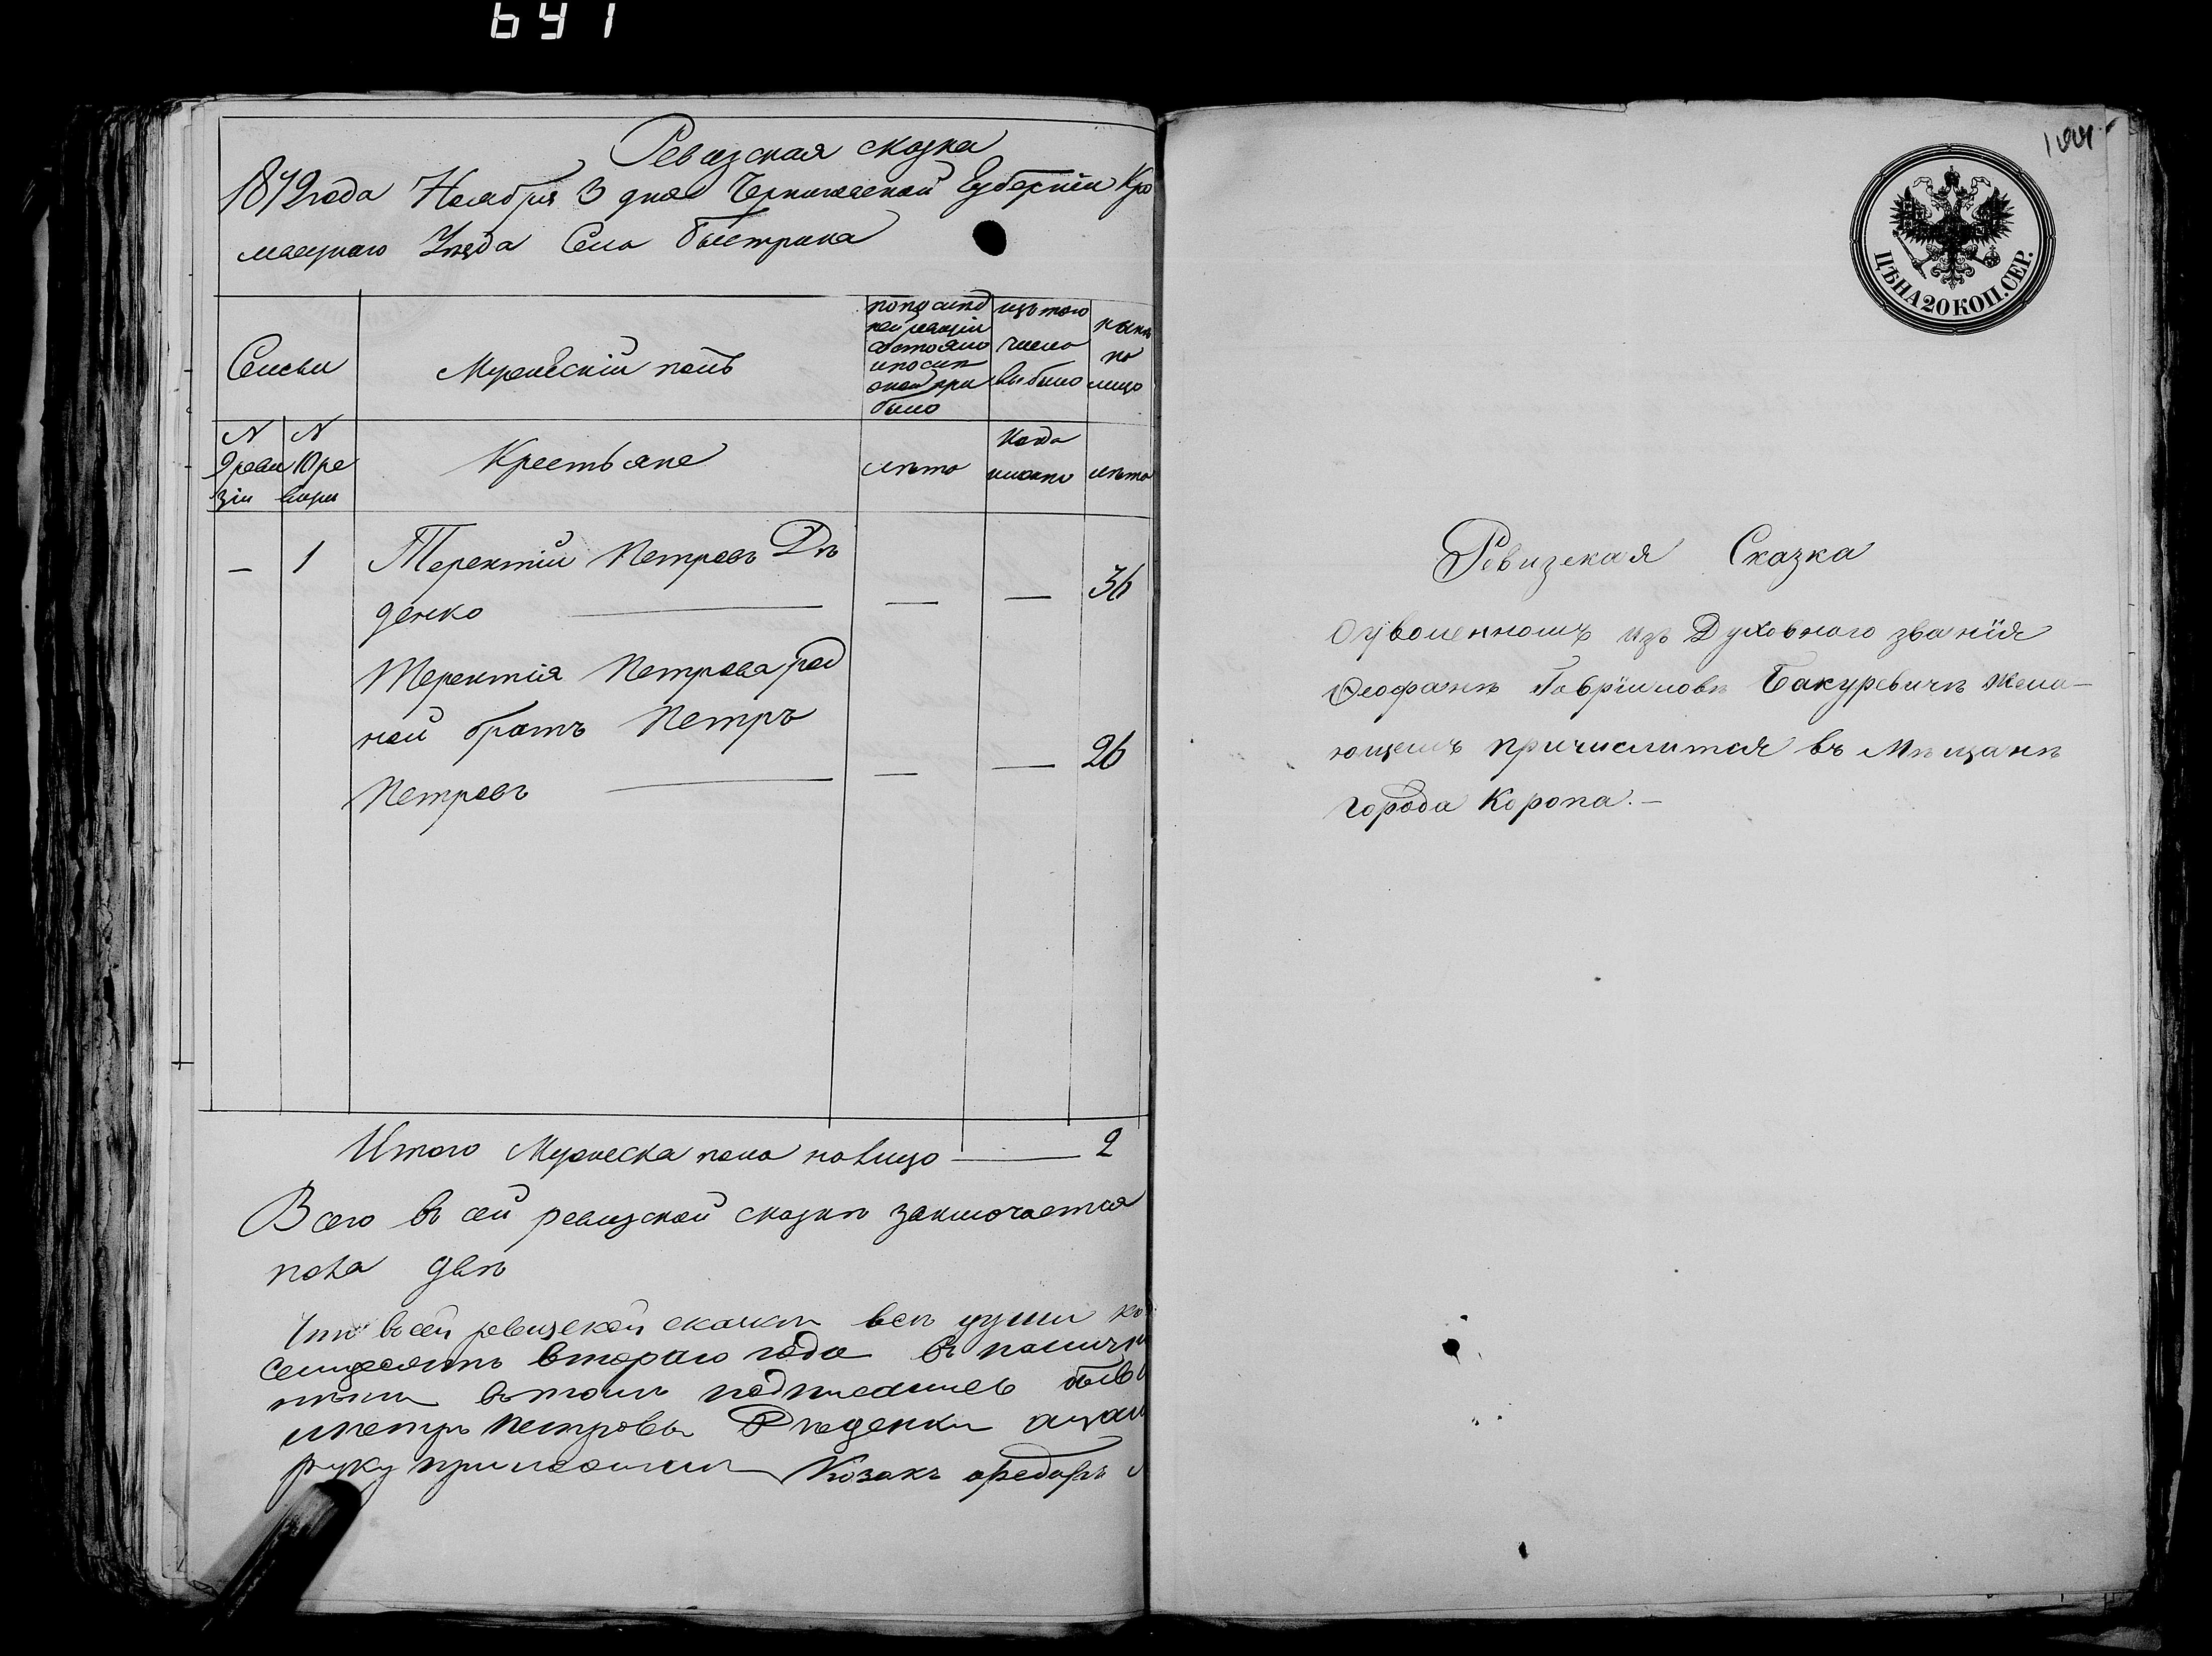 641
Ревизская сказка
1872 года Ноября 3 дня Черниговской Губерніи Кро
левецкаго Уезда Села Быстрика
Семьи
Мужескій полъ
по послед
ней ревизіи
состояло
и после
оной при
было
изъ того
числа
выбыло
ныне
на
лицо
N
9 реви
зіи
N
10 ре
визіи
Крестьяне
лета
Когда
именно
лета
— 1 Терентій Петровъ Де — — 36
денко
Терентія Петрова род
ной братъ Петръ — — 26
Петровъ
Итого Мужеска пола на лицо — 2
Всего въ сей ревизской сказке заключается
пола две
Что въ сей ревизской сказки все души
семдесять втораго года въ
въ томъ подписались
и Петръ Петровы Деденки
руку приложилъ Козакъ Федоръ
ЦѢНА 20 КОП. СЕР.
Ревизская Сказка
О уволенномъ изъ Духовнаго званія
Ѳеофане Гавріилове Бакуревиче жела-
ющемъ причислится въ Мещане
города Коропа.—